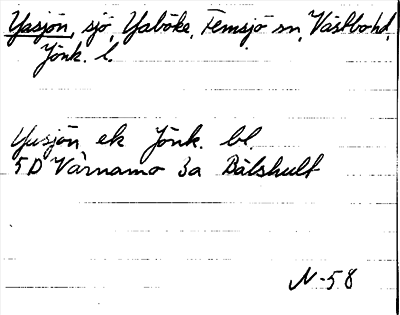 Yasjön, sjö, Yaböke, Femsjö sn, Västbo hd,
Jönk. l.
Yasjön ek Jönk. bl.
5D Värnamo 3a Bälshult
N-58